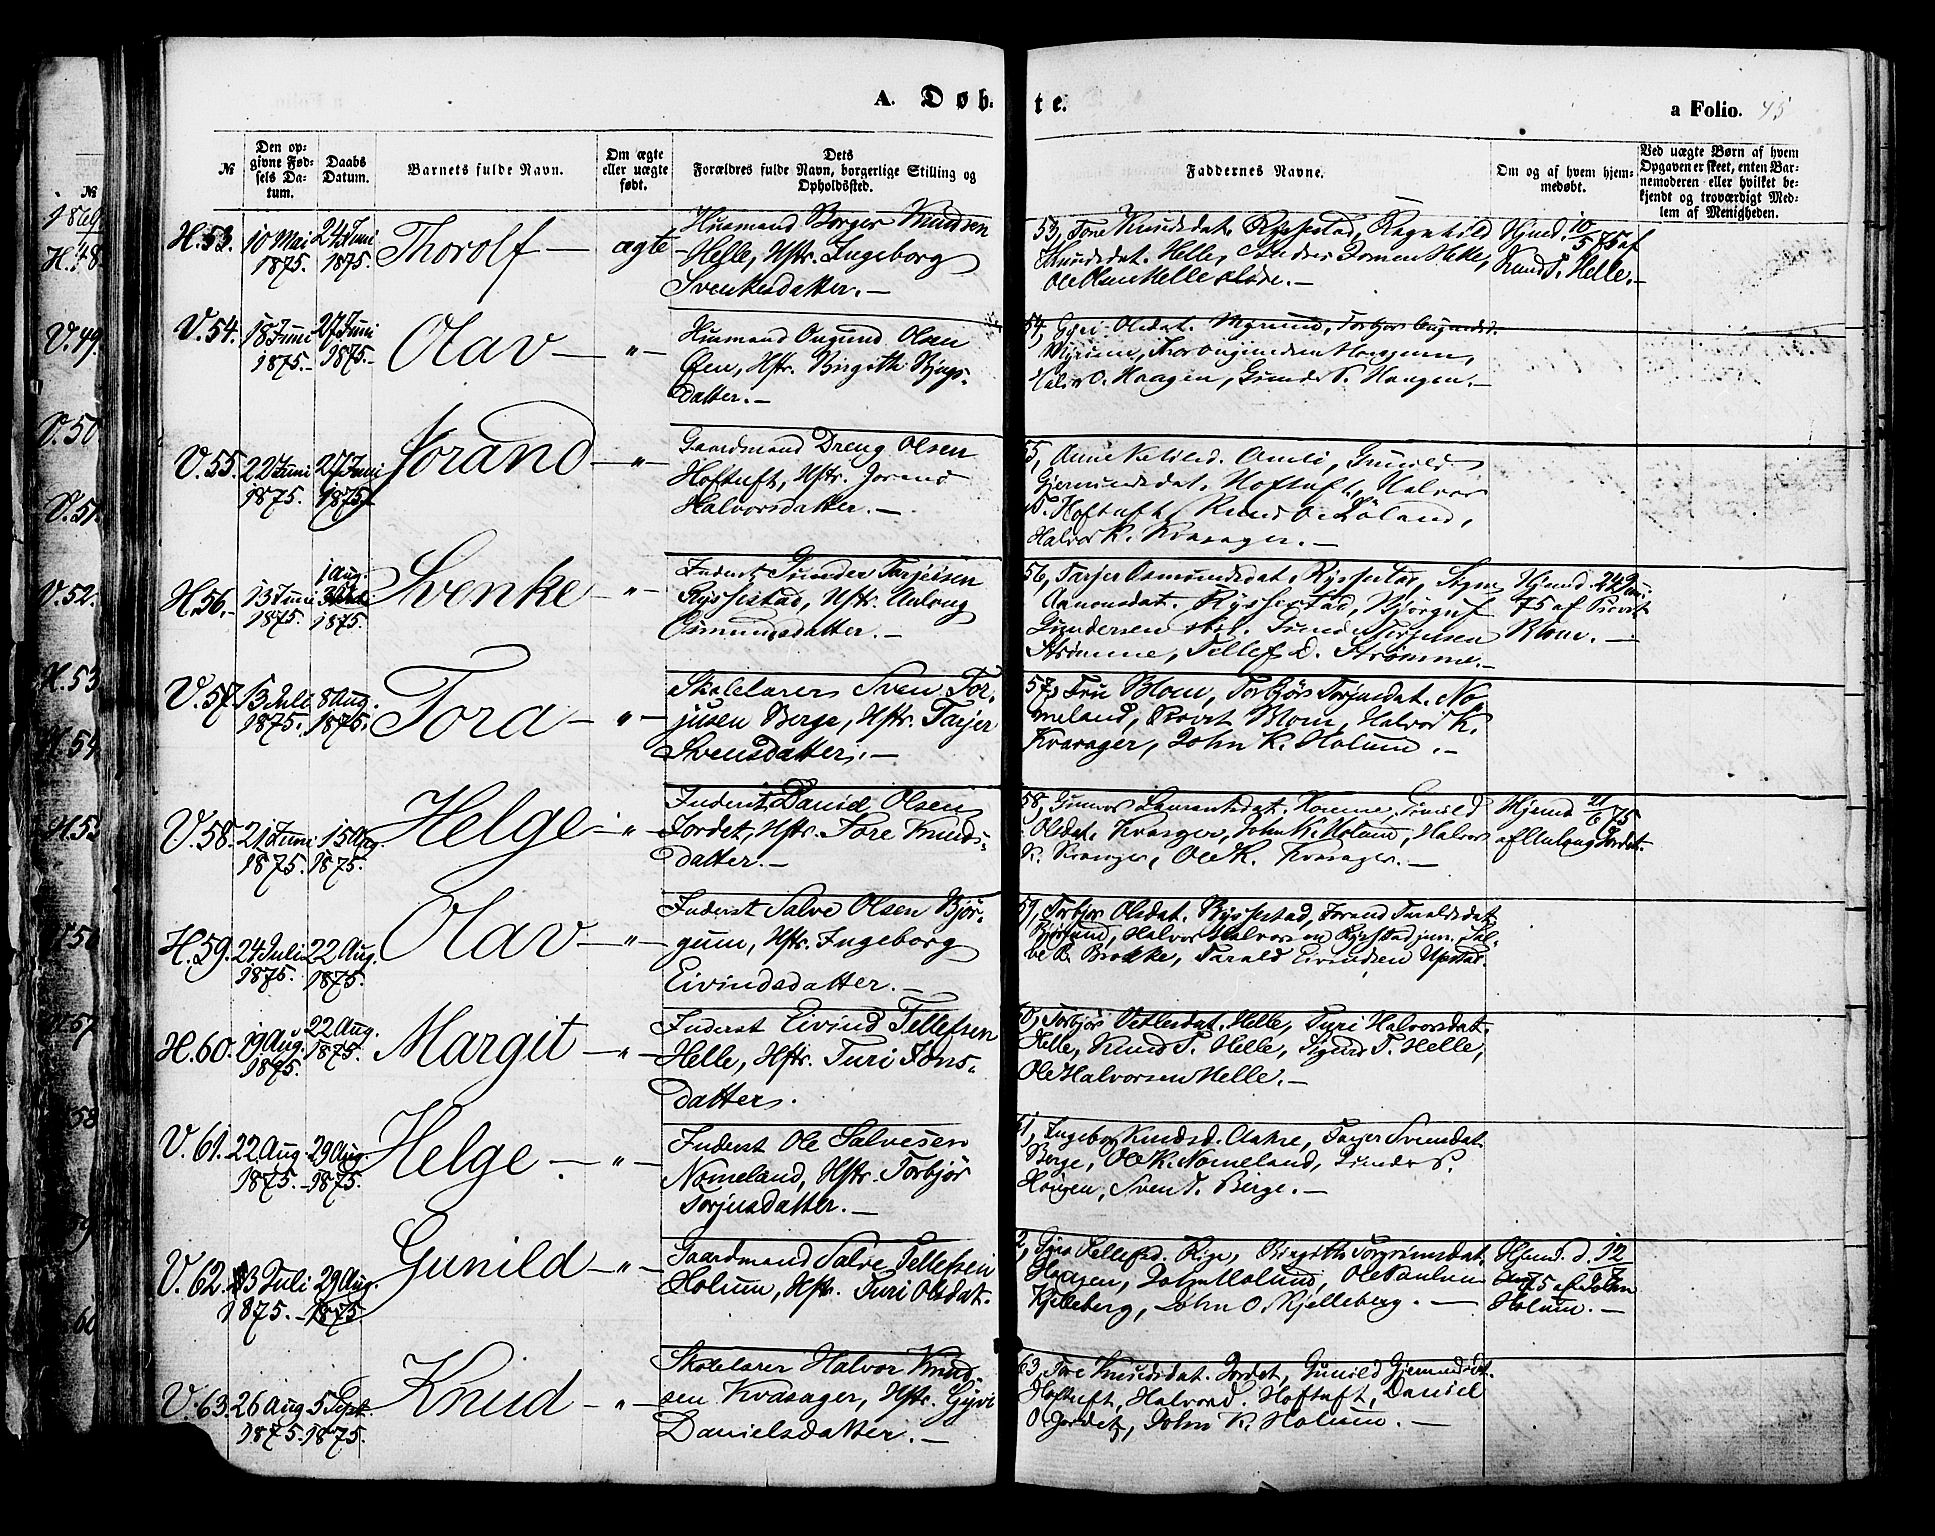 A. Døb-
te.
a Folio. 45
№
Den op-
givne Fød-
sels Da-
tum.
Daabs
Datum.
Barnets fulde Navn.
Om ægte
eller uægte
født.
Dets
Forældres fulde Navn, borgerlige Stilling og
Opholdssted.
Faddernes Navne.
Om og af hvem hjem-
medøbt.
Ved uægte Børn af hvem
Opgaven er skeet, enten Bar-
nemoderen eller hvilket be-
kjendt og troværdigt Med-
lem af Menigheden.
H. 53. 10 Mai 1875. 24 Juni 1875. Thorolf — ægte —
Huusmand Borger Knudsen
Helle, Hstr. Ingeborg
Svenkesdatter. —
53, Tore Knudsdat. Rysstad, Ragnhild
Knudsdat. Helle, Helle,
Ole Olsen Helle
Hjmd. 10/5 75 af
Knud T. Helle. —
V. 54. 18 Juni 1875. — 27 Juni 1875. — Olav — „ —
Huusmand Ougund Olsen
Øen, Hstr. Birgith Bjugs-
datter. —
54, Gyri Olsdat. Myrum, Torbjør
Myrum, Thor Haagen,
O. Haagen, Gunder S. Haagen. —
V. 55. 22 Juni 1875. 27 Juni 1875. Jorand — „ —
Gaardmand Dreng Olsen
Hoftuft, Hstr. Jorund
Halvorsdatter. —
55, Anne Amli, Gunild
Gjermundsdat. Hoftuft, Halvor
Hoftuft, Knud O.
Halvor K. Kvasager. —
H. 56. — 13 Juni 1875. 1 Aug. 1875. Svenke — „ —
Inderst Gunder Tarjeisen
Rysstad, Hstr. Aslaug
Osmundsdatter. —
56, Tarjer Osmundsdat. Rysstad, Sign
Aanonsdat. Rysstad, Bjørguf
Gundersen Torjusen
Strømme, Tellef D. Strømme. —
Hjmd. 24 Juni
75 af Provst
Blom. —
V. 57. 13 Juli 1875. 8 Aug. 1875. Tora — „ —
Skolelærer Sven Tor-
jusen Berge, Hstr. Tarjer
Svensdatter. —
57, Fru Blom, Torbjør Torjusdat. No-
meland, Provst Blom, Halvor K.
Kvasager, John K. Holum. —
V. 58. 21 Juni 1875. 15 Aug. 1875. Helge — „ —
Inderst Daniel Olsen
Jordet, Hstr. Tore Knuds-
datter. —
58, Gunvor Homme, Gunild
Olsdat. Kvasager, John K. Holum, Halvor
K. Kvasager, Ole K. Kvasager. —
Hjmd 21/6 75
af Aslaug Jordet.
H. 59. 24 Juli 1875. 22 Aug. 1875. Olav — „ —
Inderst Salve Olsen Bjør-
gum, Hstr. Ingeborg
Eivindsdatter. —
59, Torbjør Olsdat. Rysstad, Jorand Taraldsdat.
Bjørgum, Halvor Halvorsen Rysstad jun. Sal-
ve B. Brokke, Tarald Eivindsen Upstad.
H. 60. 19 Aug. 1875. 22 Aug. 1875. Margit — „ —
Inderst Eivind Tellefsen
Helle, Hstr. Turi Jons-
datter.
60, Torbjør Vetlesdat. Helle, Turi Halvorsdat.
Helle, Knud T. Helle, Sigurd T. Helle,
Ole Halvorsen Helle. —
V. 61. 22 Aug. 1875. — 29 Aug. 1875. Helge — „ —
Inderst Ole Salvesen
Nomeland, Hstr. Torbjør
Torjusdatter. —
61, Ingebor Knudsd. Aakre, Tarjer Svensdat.
Berge, Ole K. Nomeland, Gunder S.
Haugen, Sven T. Berge. —
V. 62. 13 Juli 1875. — 29 Aug. 1875. Gunild — „ —
Gaardmand Salve Tellefsen
Holum, Hstr. Turi Olsdat.
62, Gyro Tellefsd. Rige, Birgith Torgrimsdat.
Haagen, John Holum, Ole Paulsen
Kjelleberg, John O. Kjelleberg. —
Hjmd. d.
75 af John
Holum. —
V. 63. 26 Aug. 1875. 5 Sept. 1875. Knud — „ —
Skolelærer Halvor Knud-
sen Kvasager, Hstr. Gyvi
Danielsdatter. —
63, Tore Knudsdat. Jordet, Gunild Gjermundsdat.
Hoftuft, Halvor D. Hoftuft, Daniel
O. Jordet, John K. Holum. —
№
H. 48.
V. 49.
V. 50.
V. 51.
V. 52.
H. 53
H. 54
57
58
60